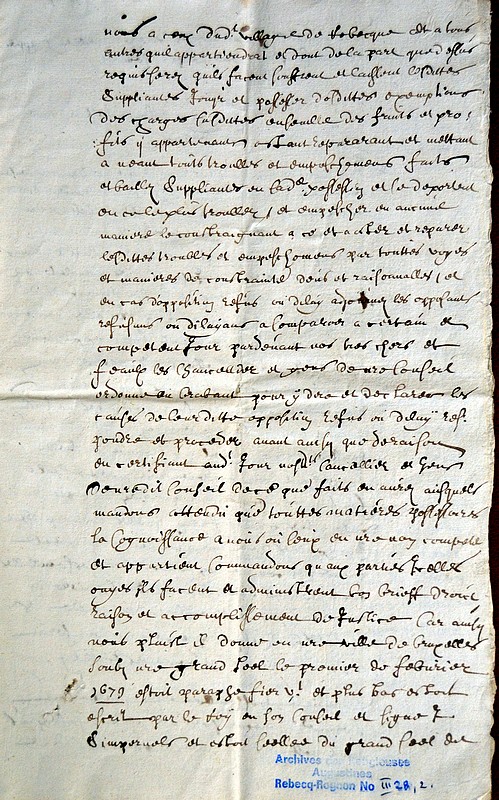 nous a ceux dudt village de Rebecque et a tous
autres quil appartiendrat et dont de la part que dessus
requis serez quils facent souffrent et laissent lesdittes
Suppliantes Jouyr et posseser desdittes exemptions
des charges susdittes ensemble des fruits et pro,
fits ÿ appartenants et mettant
a neant touts troubles et empeschemens faits
et bailly Suppliantes en possession et se deportent
en ce les plus troubler, et empescher en aucune
maniere le constraignant a ce et a cesser et reparer
lesdittes troubles et empeschemens par touttes voyes
et manieres de constrainte deues et raisonnelles, et
en cas dopposition refus ou delay adjournez les opposans
refusans ou dilayans a comparoir a certain et
competent Jour pardevant nos tres chers et
feaulx les Chancellier et gens de nre Conseil
ordonne en Brabant pour ÿ dire et declarer les
causes de leurditte opposition refus ou delaÿ res,
pondre et proceder avant ainsy que de raison
en certifiant audt Jour nosdts Cancellier et Gens
de nredit Conseil de ce que faits en aurez ausquels
mandons attendu que touttes matieres possessoires
la Cognoissance a nous ou ceux en nre nom compete
et appartient Commandons qu aux parties Icelles
ouyes ils facent et administrent bon brieff droict
raison et accomplissement de Justice Car ainsy
nous plaist il donne en nre ville de bruxelles
soubz nre grand seel le premier de febvrier
1679 estoit paraphe et plus bas estoit
escrit par le Roy en son Conseil et signe
et estoit seellee du grand seel de
Archives des Religieuses
Augustines
Rebecq-Rognon No III 28, 2.